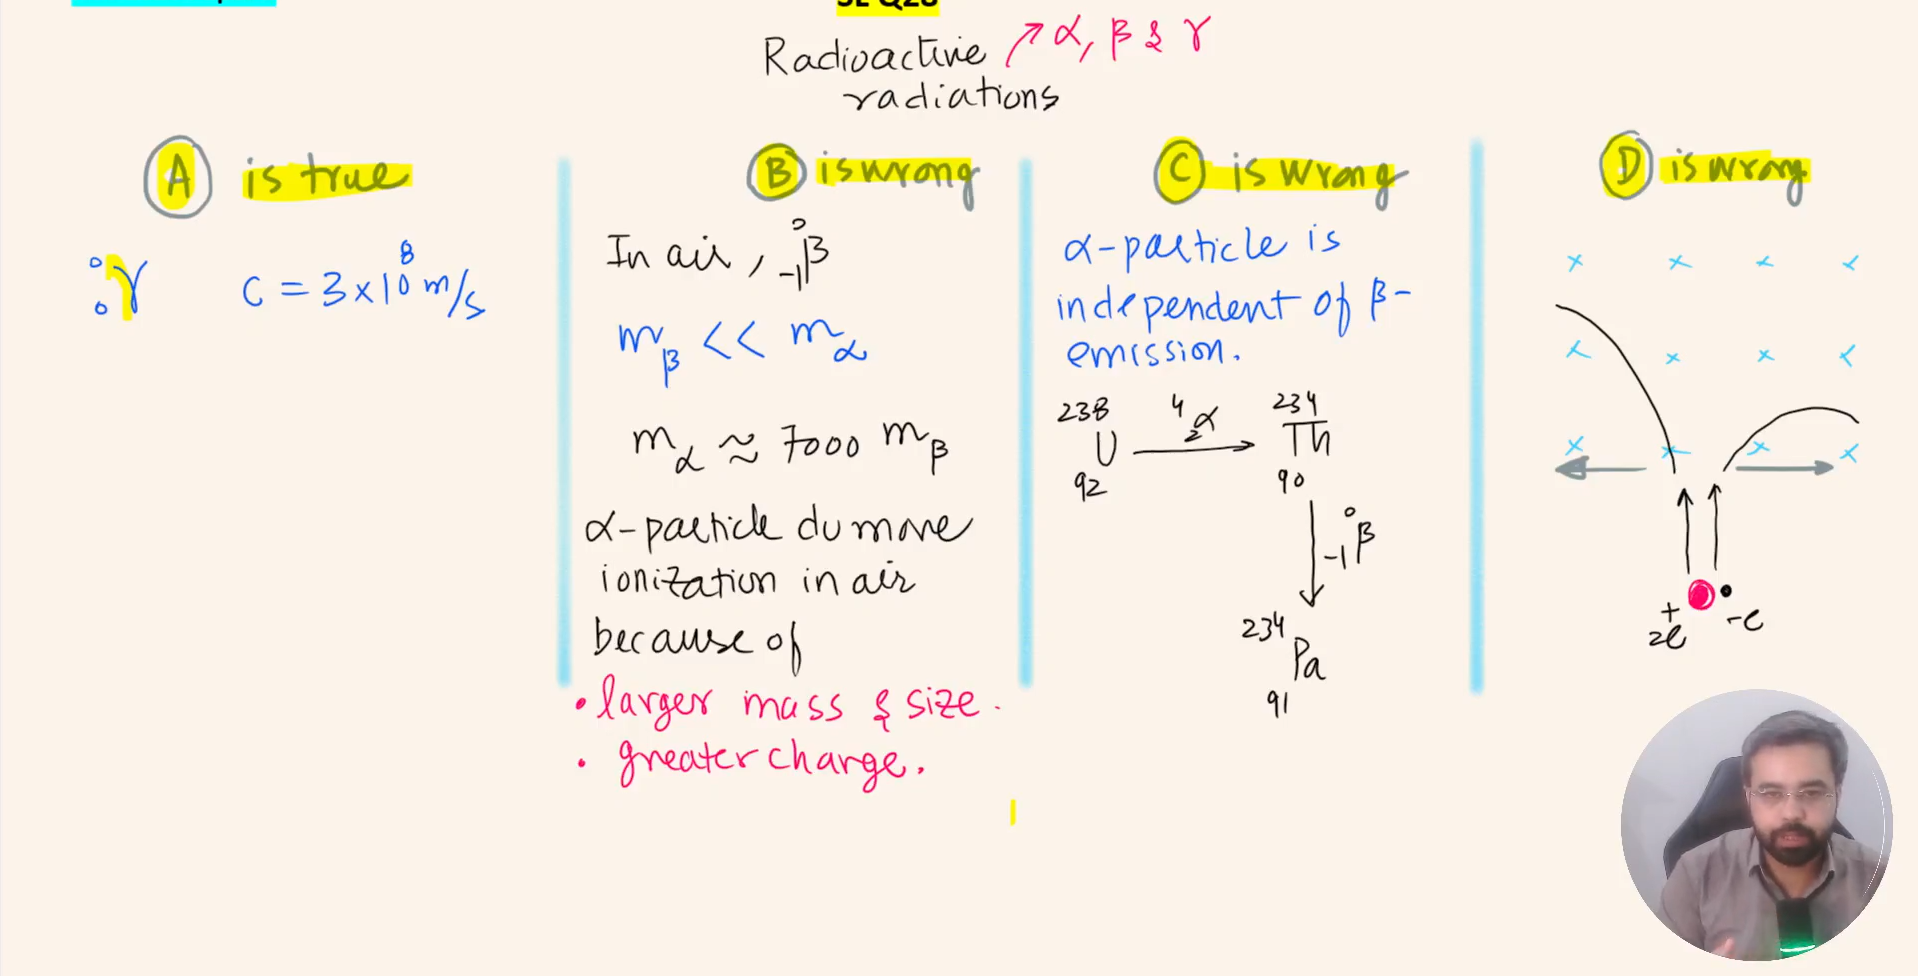 SL Q28
Radioactive ↗ α, β & γ
radiations
A is true
⁰₀γ C = 3×10⁸ m/s
B is wrong
In air, ⁰₋₁β
m_β << m_α
m_α ≈ 7000 m_β
α-particle du more
ionization in air
because of
• larger mass & size.
• greater charge.
C is wrong
α-particle is
independent of β-
emission.
238 4 234
U ₂α → Th
92 90
⁰₋₁β
234
Pa
91
D is wrong
× × × ×
× × × ×
× × × ×
+ -e
2e